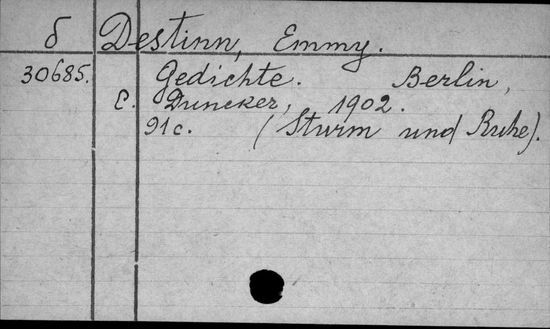 б Destinn, Emmy.
30685. Gedichte. Berlin,
С. Duncker, 1902.
91 c. (Sturm und Ruhe).